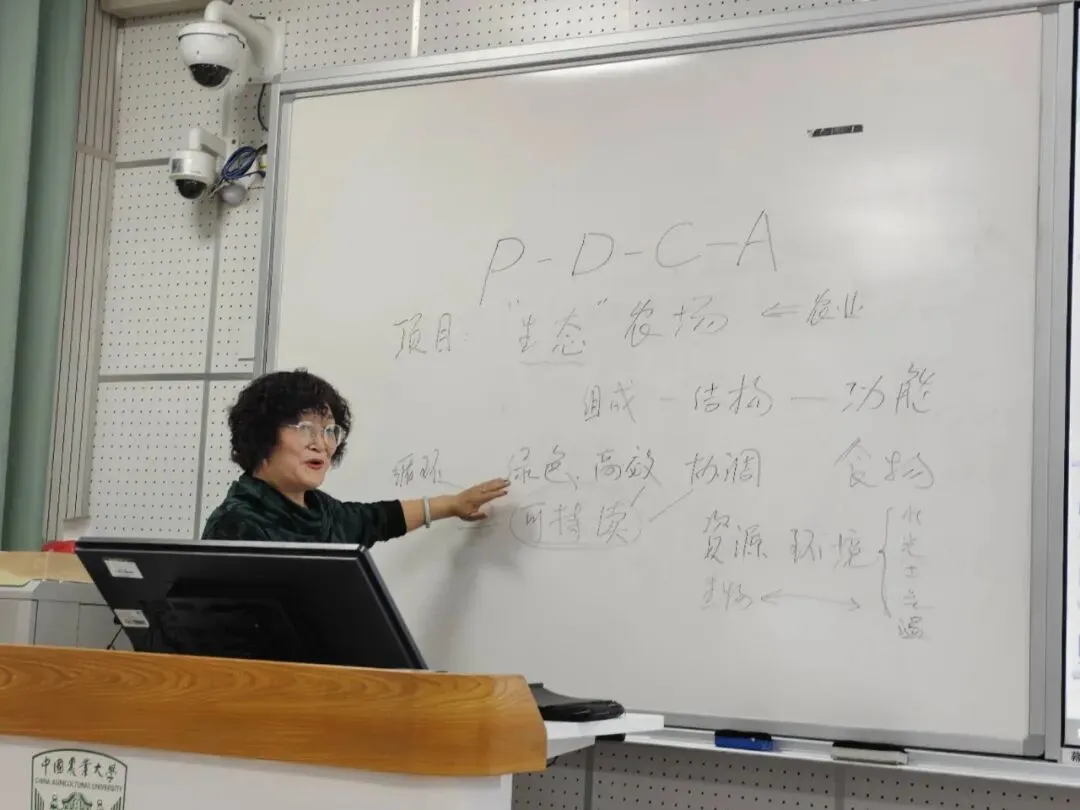 P-D-C-A
项目: "生态" 农场 ← 农业
组成 - 结构 - 功能
循环 绿色、高效 协调 食物
可持续
资源 环境 { 水 光 土 气 温
生物 ↔
中国农业大学
CHINA AGRICULTURAL UNIVERSITY